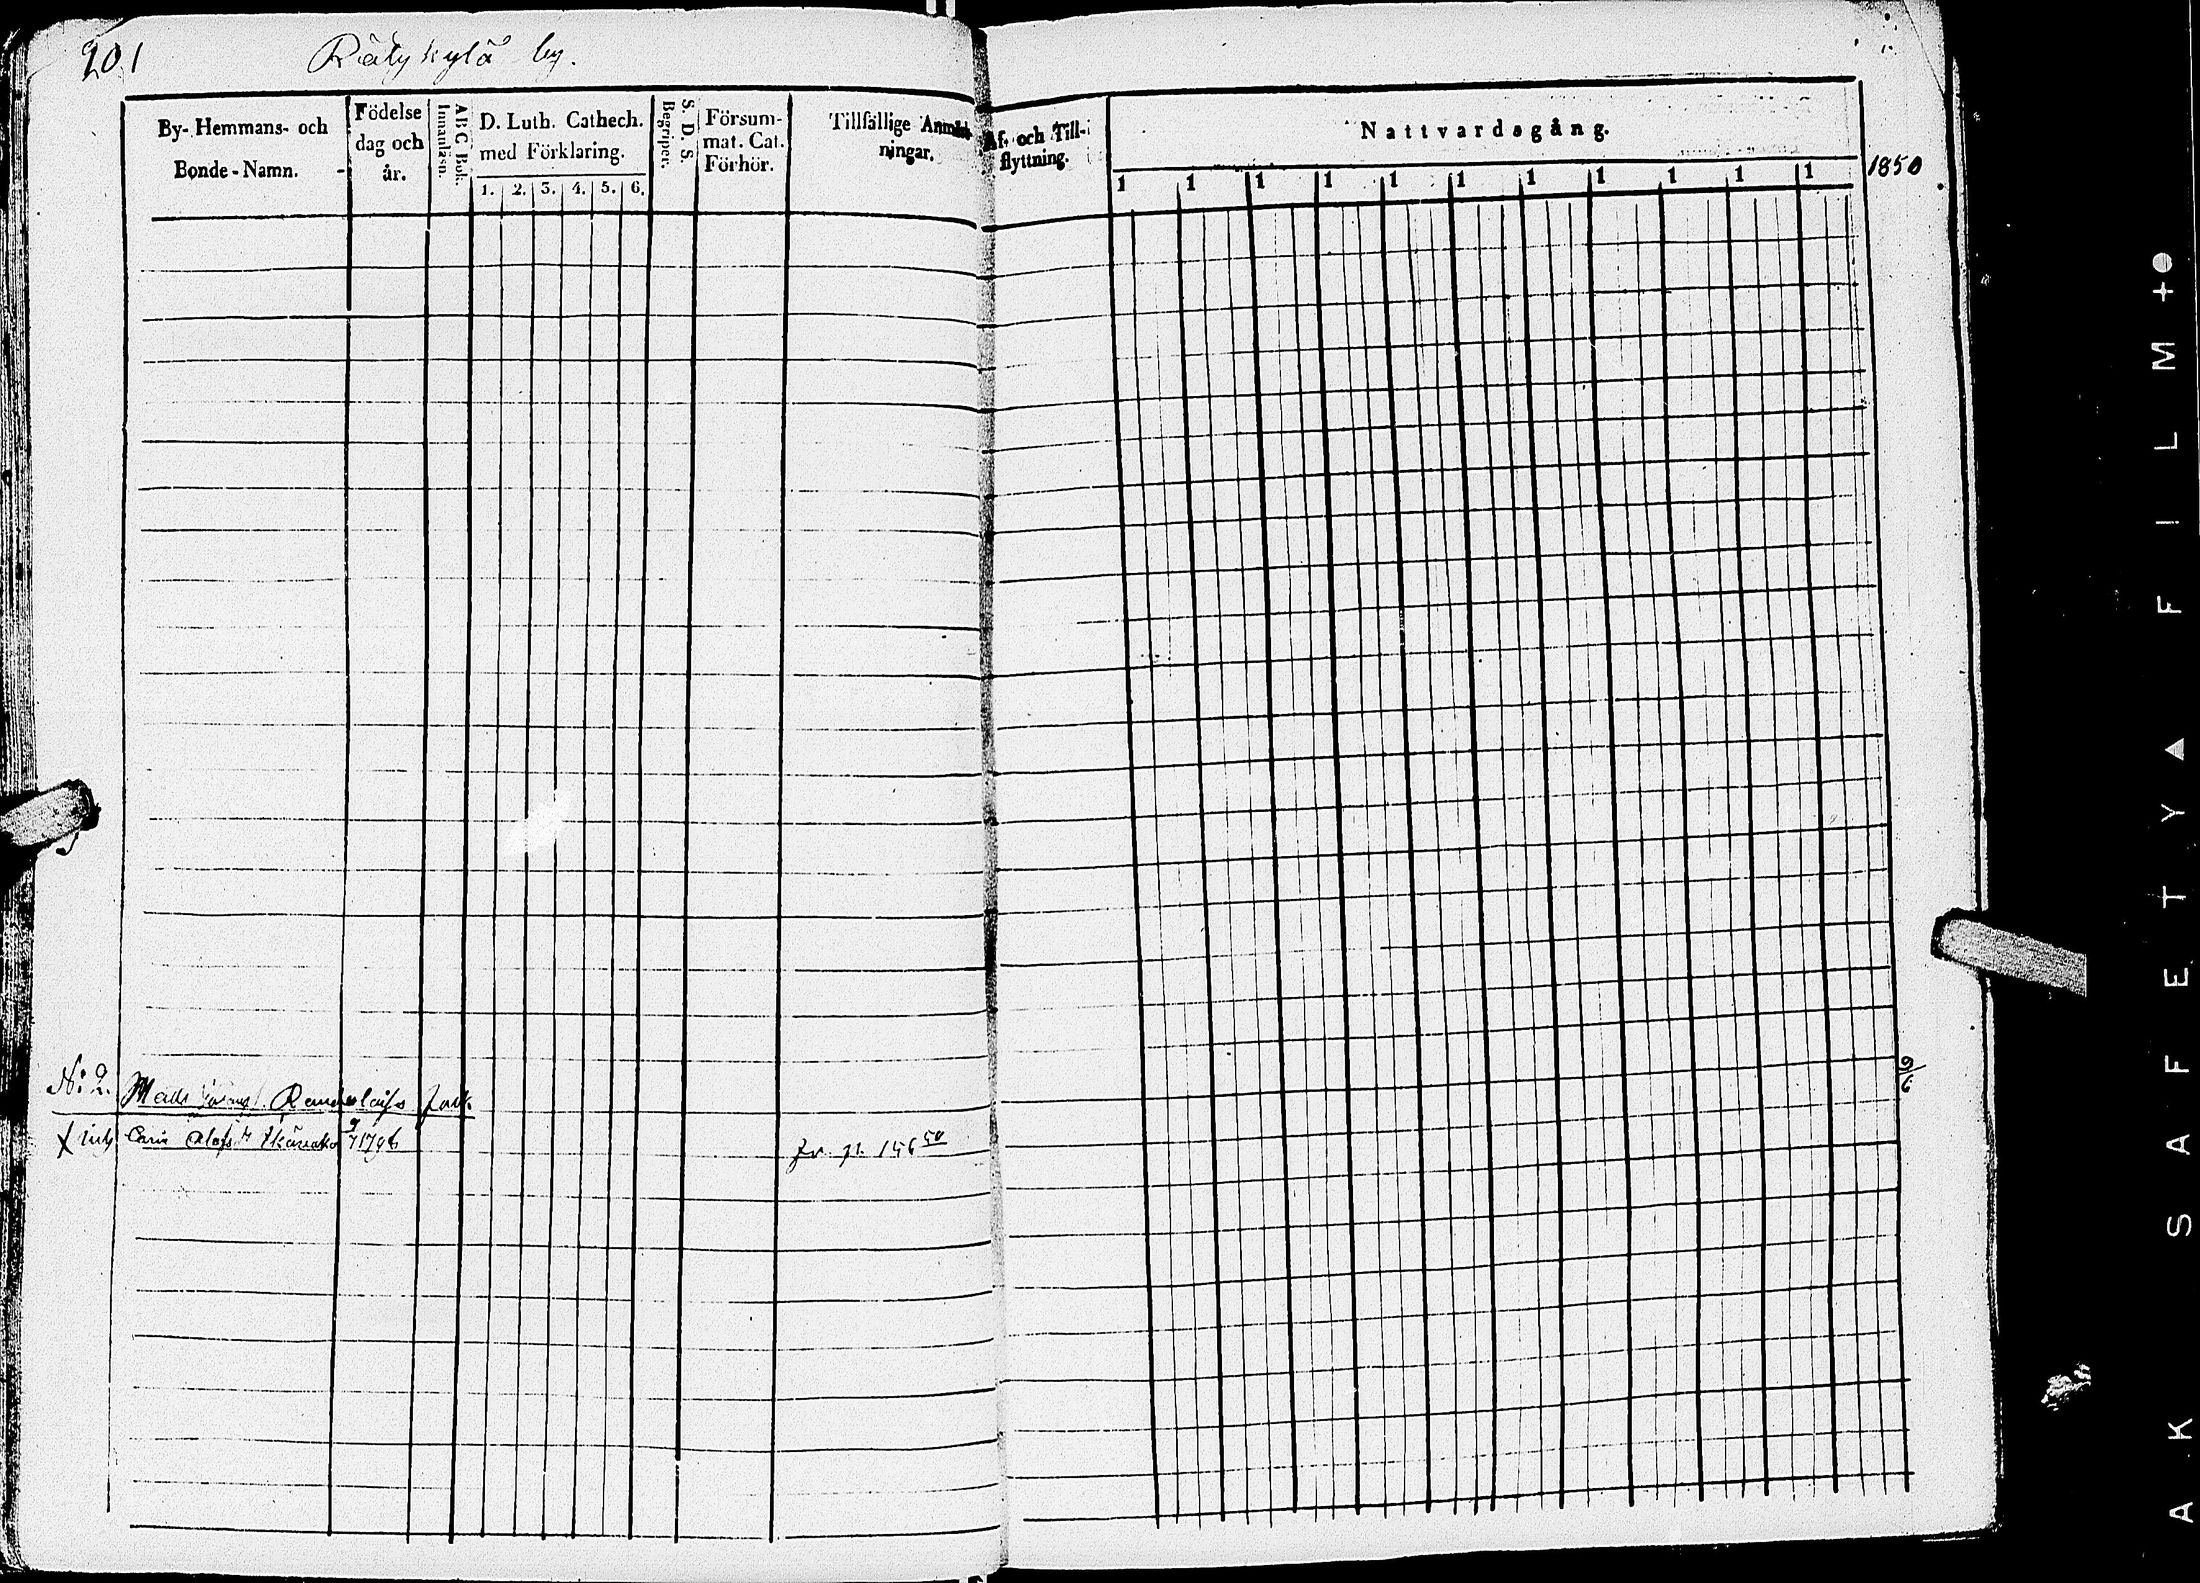 201 Rätykylä by.
By- Hemmans- och Bonde-Namn.
Födelse dag och år.
ABC Bok. Innanläsn.
D. Luth. Cathech. med Förklaring.
1. 2. 3. 4. 5. 6.
S. D. S. Begriper.
Försummat. Cat. Förhör.
Tillfällige Anmärkningar.
Af- och Tillflyttning.
Nattvardsgång.
1 1 1 1 1 1 1 1 1 1 1 1850
9/6
No: 2. Matts
Carin Olofs dr 9/7 1796 fr. p. 156 50
AK SAFETY▲ FILM +●